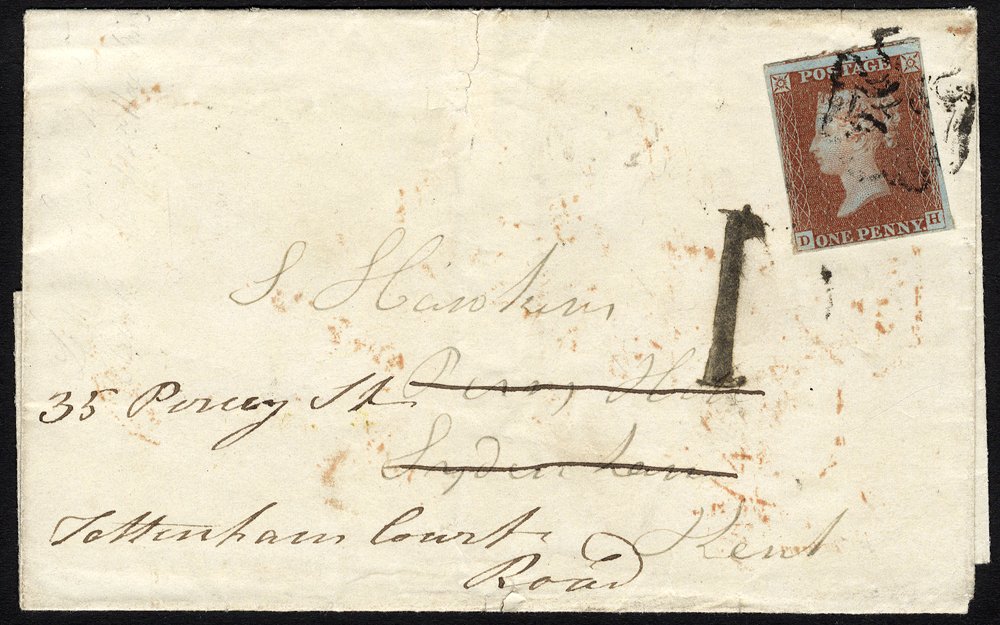 POSTAGE
D ONE PENNY. H
1
S. Hawkins
Perry Hill
35 Percy St.
Sydenham
Tottenham Court
Kent
Road